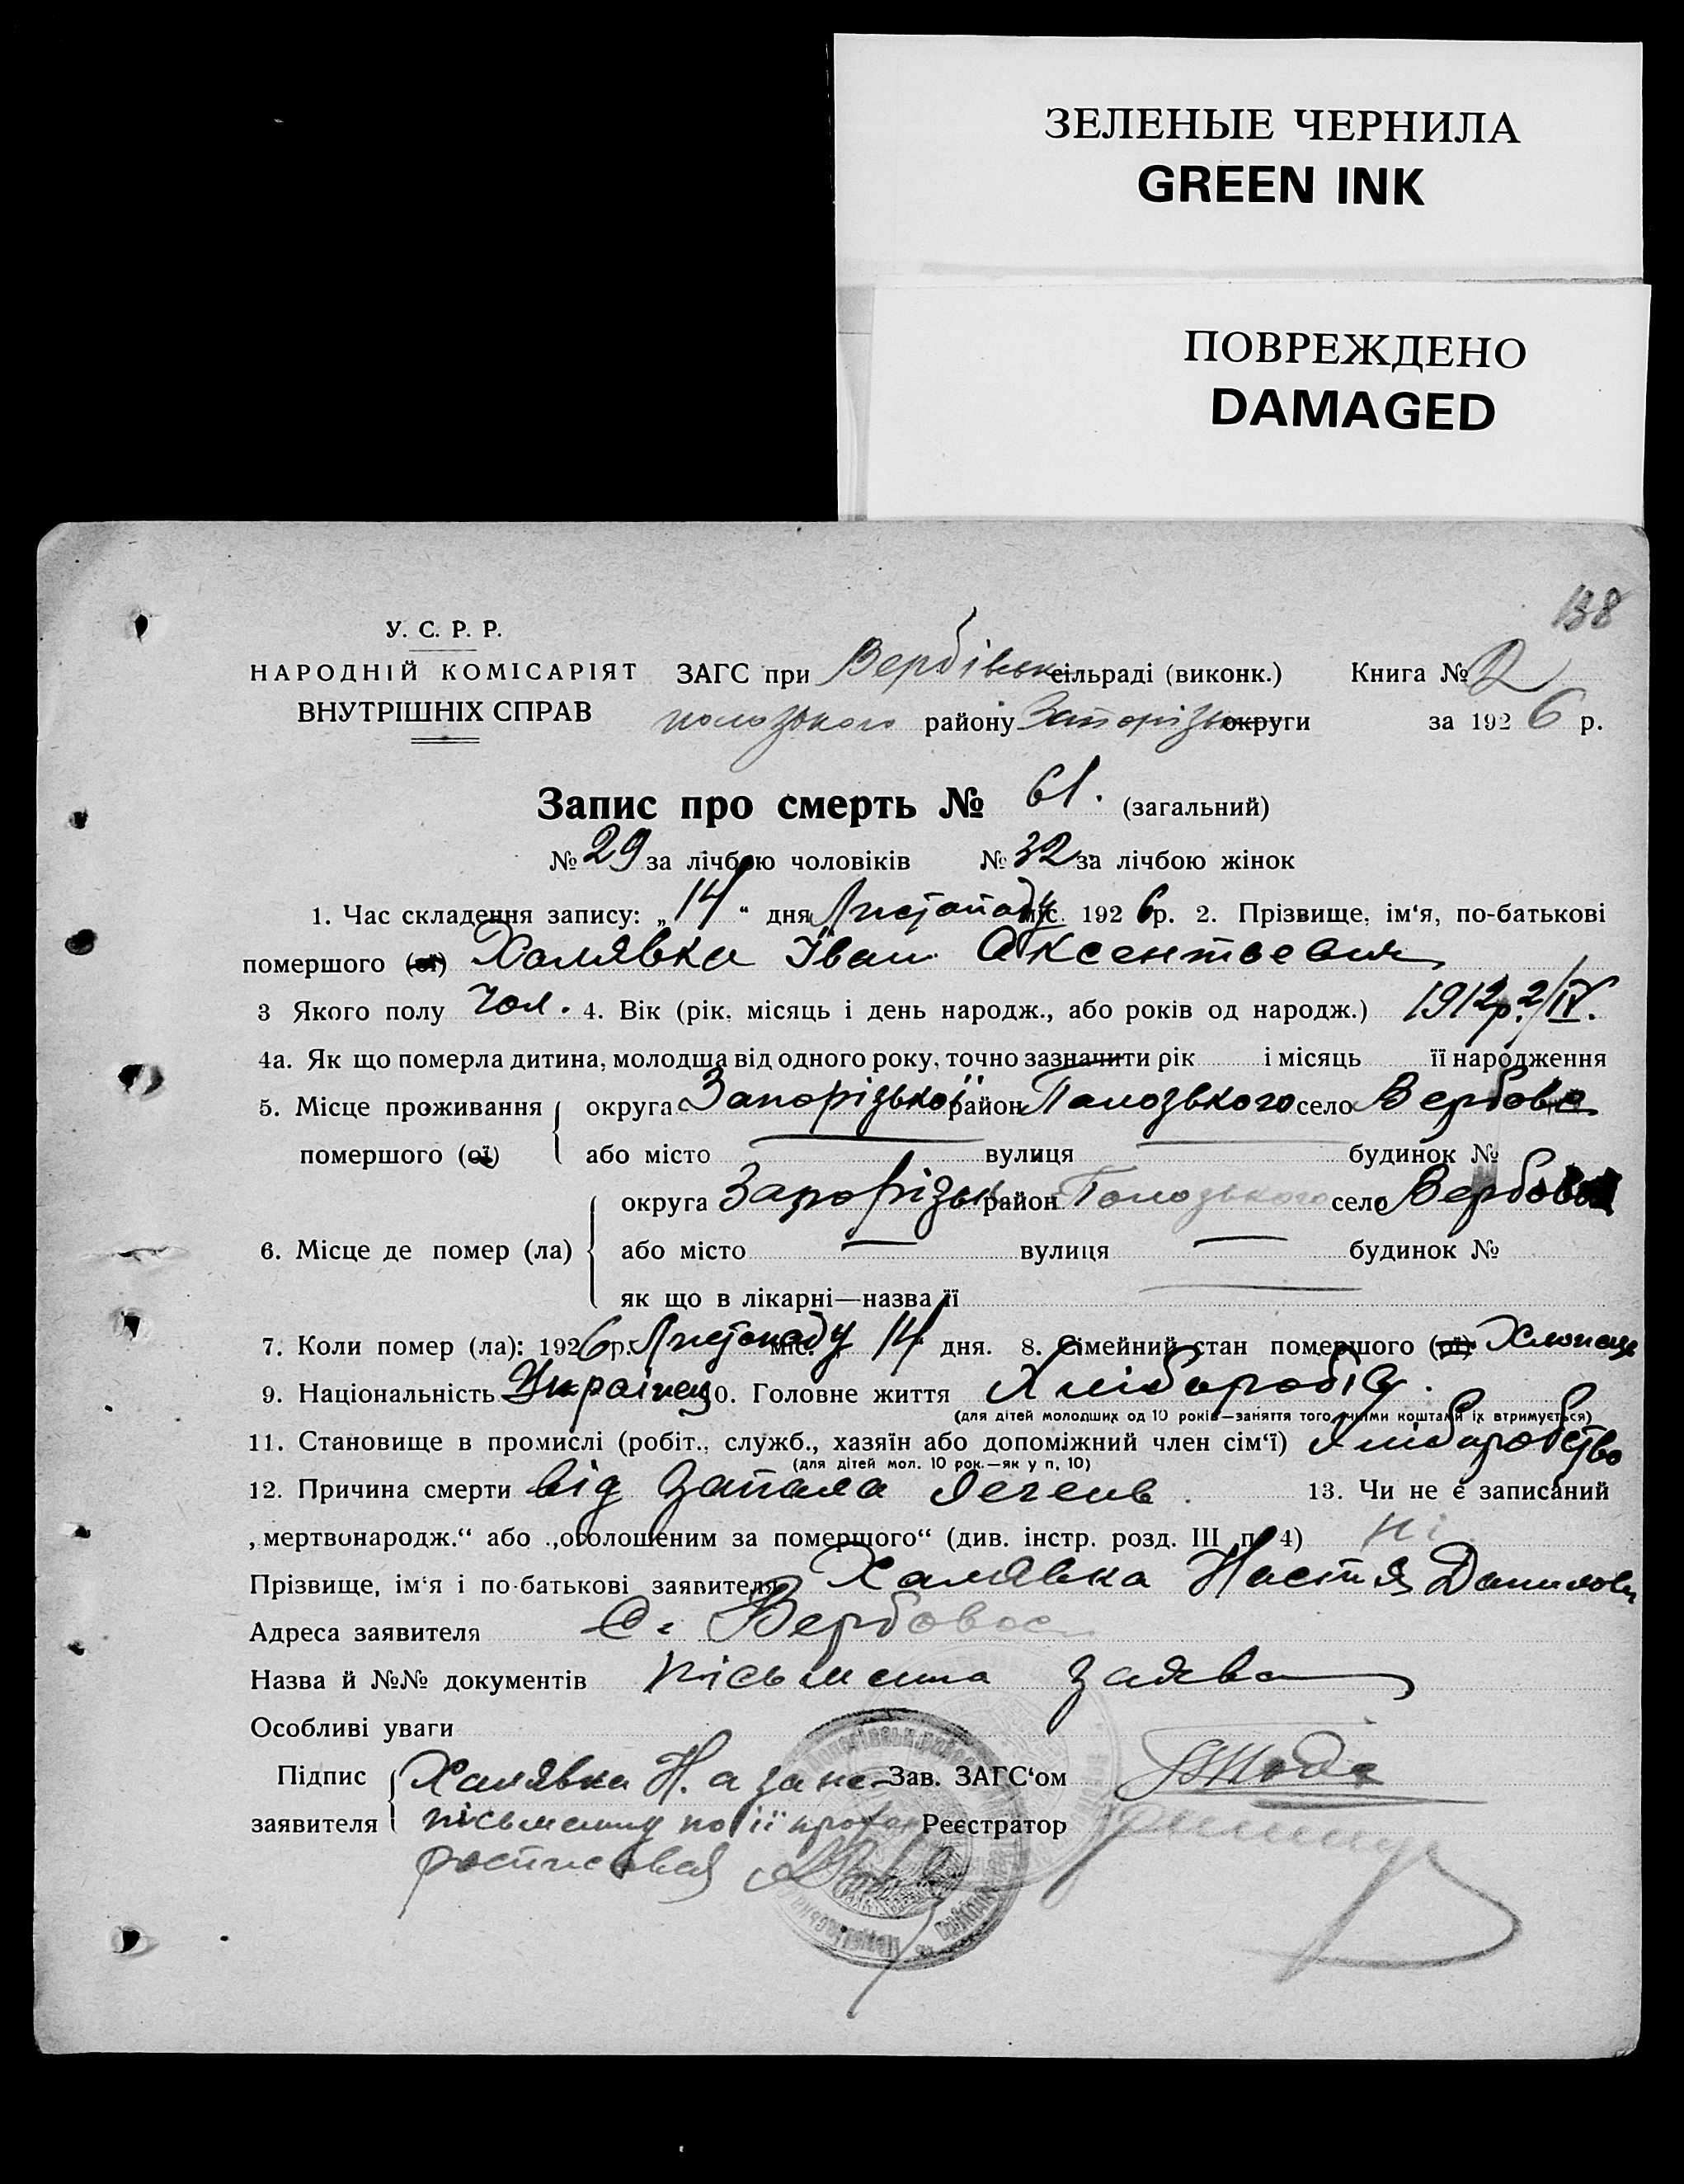 ЗЕЛЕНЫЕ ЧЕРНИЛА
GREEN INK
ПОВРЕЖДЕНО
DAMAGED
138
У. С. Р. Р.
НАРОДНІЙ КОМІСАРІЯТ ЗАГС при Вербівськ сільраді (виконк.) Книга № 2
ВНУТРІШНІХ СПРАВ пологзького району Запорізь округи за 1926 р.
Запис про смерть № 61. (загальний)
№ 29 за лічбою чоловіків № 32 за лічбою жінок
1. Час складення запису: „14“ дня Листопаду міс. 1926 р. 2. Прізвище, ім‘я, по-батькові
помершого (ої) Халявка Іван Аксентьевич
3 Якого полу Чол. 4. Вік (рік, місяць і день народж., або років од народж.) 1912р. 2/IV.
4а. Як що померла дитина, молодша від одного року, точно зазначити рік і місяць її народження
5. Місце проживання округа Запорізької район Пологзького село Вербове
помершого (ої) або місто вулиця будинок №
округа Запорізьк район Пологзького село Вербове
6. Місце де помер (ла) або місто вулиця будинок №
як що в лікарні—назва її
7. Коли помер (ла): 1926 р. Листопаду міс. 14 дня. 8. Сімейний стан помершого (ої) Хлопець
9. Національність Украінец 10. Головне життя Хлібороб
(для дітей молодших од 10 років—заняття того, чиїми коштами їх втримується)
11. Становище в промислі (робіт., служб., хазяїн або допоміжний член сім‘ї) Хліборобство
(для дітей мол. 10 рок.—як у п. 10)
12. Причина смерти від запала легень. 13. Чи не є записаний
„мертвонародж.“ або „оголошеним за помершого“ (див. інстр. розд. III п. 4) ні
Прізвище, ім‘я і по-батькові заявителя Халявка Настя Данилови
Адреса заявителя С. Вербовое
Назва й №№ документів письменна заява
Особливі уваги
Підпис Халявка Н. а за не- Зав. ЗАГС‘ом
заявителя письменну по її прозьб Реєстратор
росписався